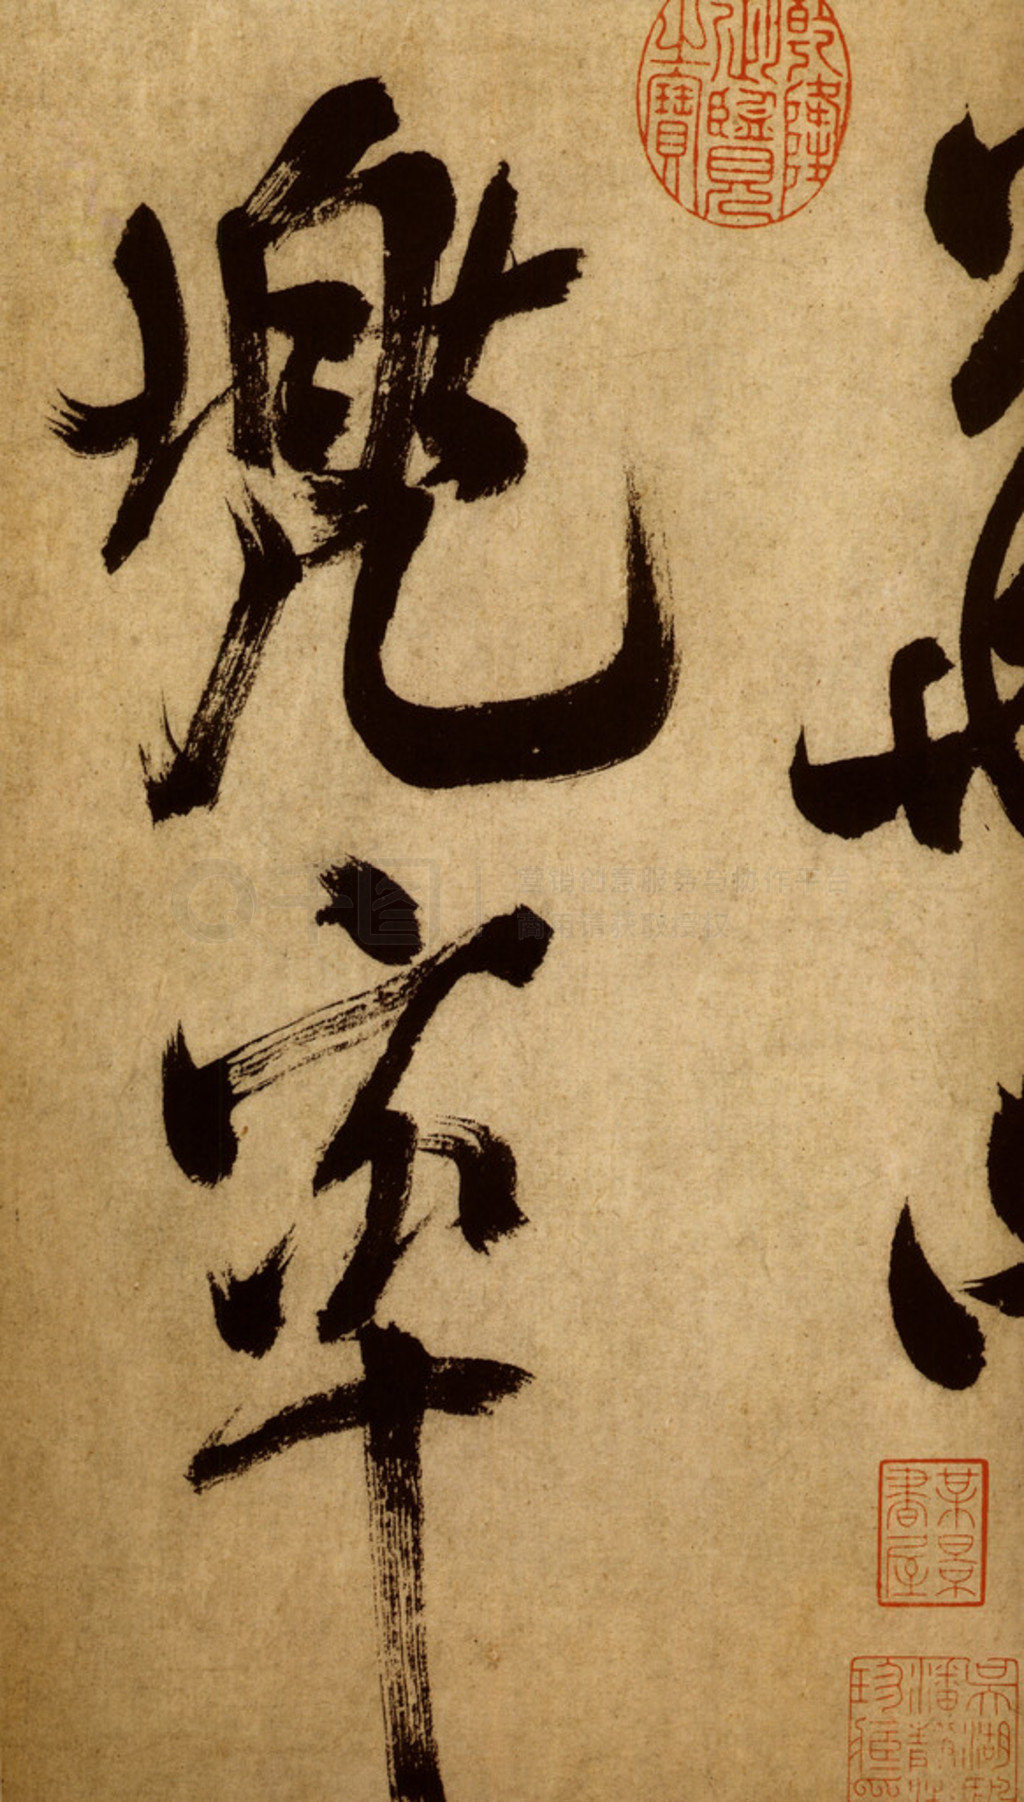 乾隆
御覽
之寶
兜率
某景
書屋
吳湖帆
潘靜淑
珍藏印
千图
营销创意服务与协作平台
商用请获取授权